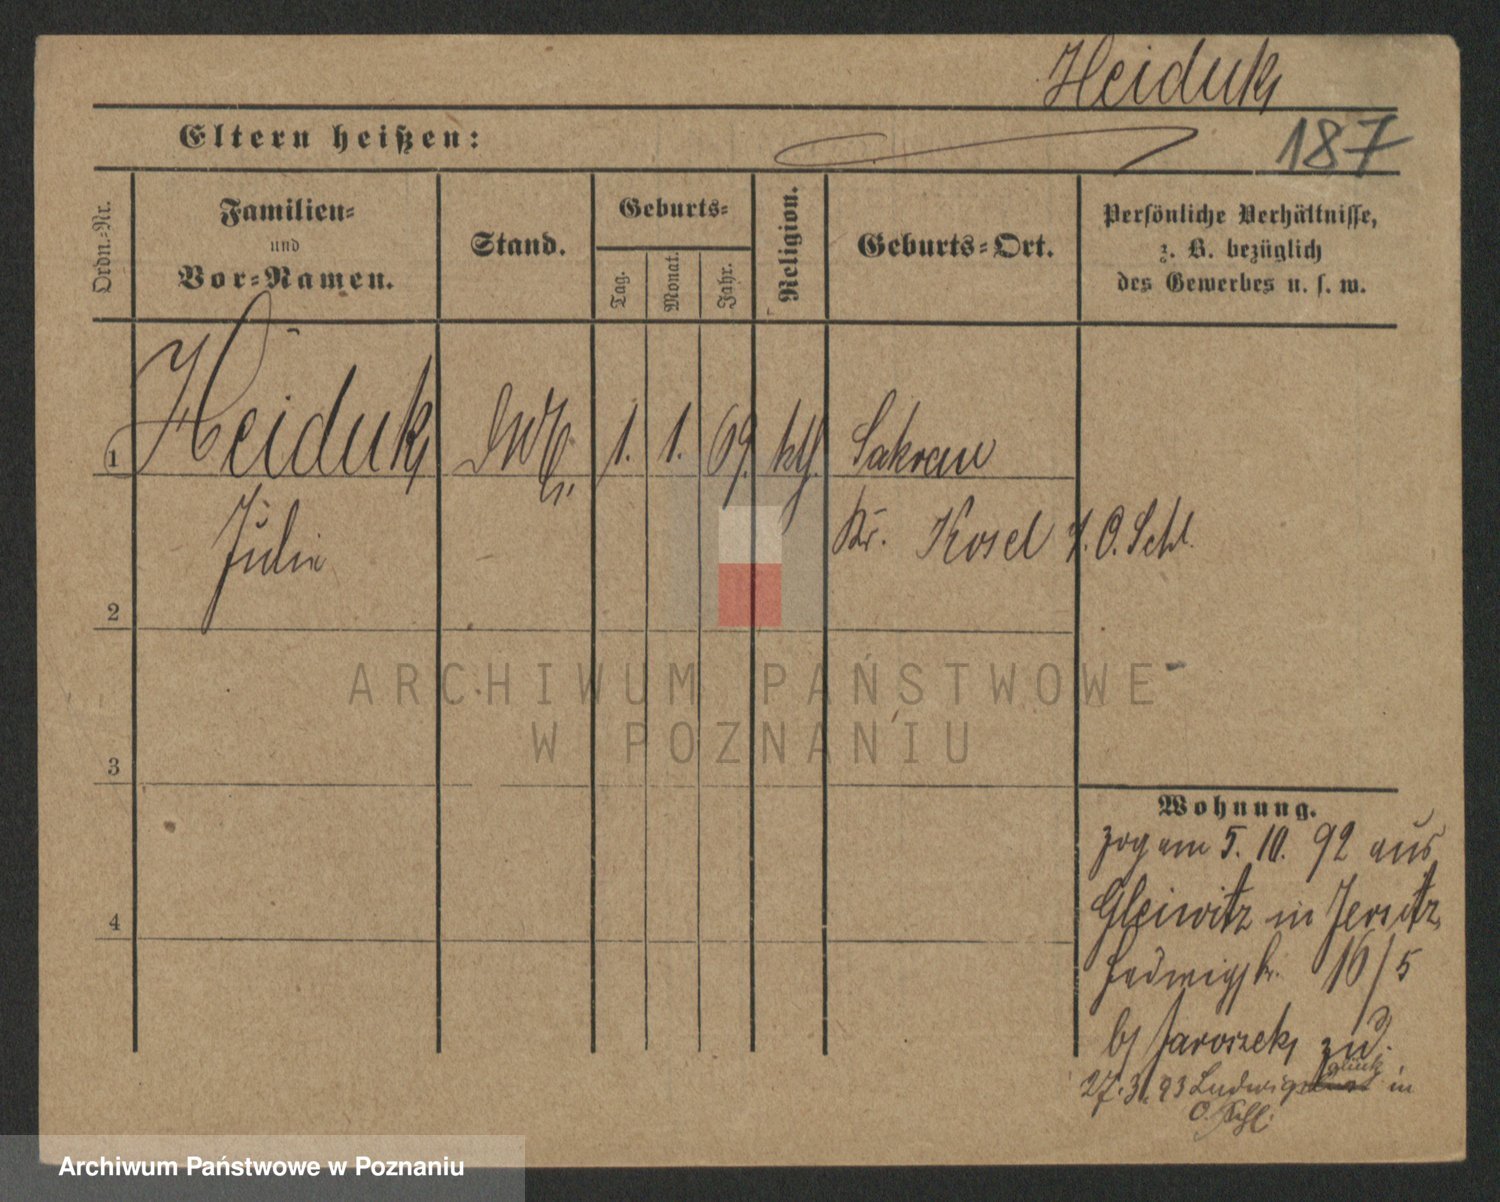 Heiduk
Eltern heißen:
187
Ordn.-Nr.
Familien-
und
Vor-Namen.
Stand.
Geburts-
Tag.
Monat.
Jahr.
Religion.
Geburts-Ort.
Persönliche Verhältnisse,
z. B. bezüglich
des Gewerbes u. s. w.
1
Heiduk
1. 1. 69. kth.
Sakrau
Julie
Kr. Kosel i. O. Schl.
2
ARCHIWUM PAŃSTWOWE
W POZNANIU
3
Wohnung.
zog am 5. 10. 92 aus
4
Gleiwitz in Jersitz
Hedwigstr. 16/5
b/ Jaroszek zu.
glück
27. 3. 93 Ludwigs in
O. Schl.
Archiwum Państwowe w Poznaniu